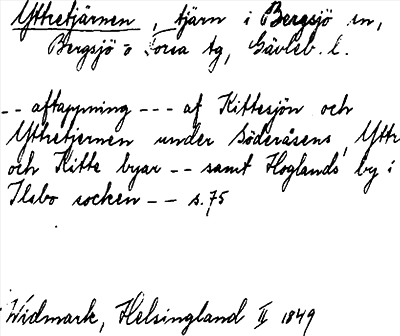 Yttretjärnen, tjärn i Bergsjö sn,
Bergsjö o Forsa tg, Gävleb. l.
-- aftappning --- af Kittesjön och
Yttretjernen under Söderåsens, Yttre
och Kitte byar -- samt Hoglands by i
Ilsbo socken -- s. 75
Widmark, Helsingland II 1849